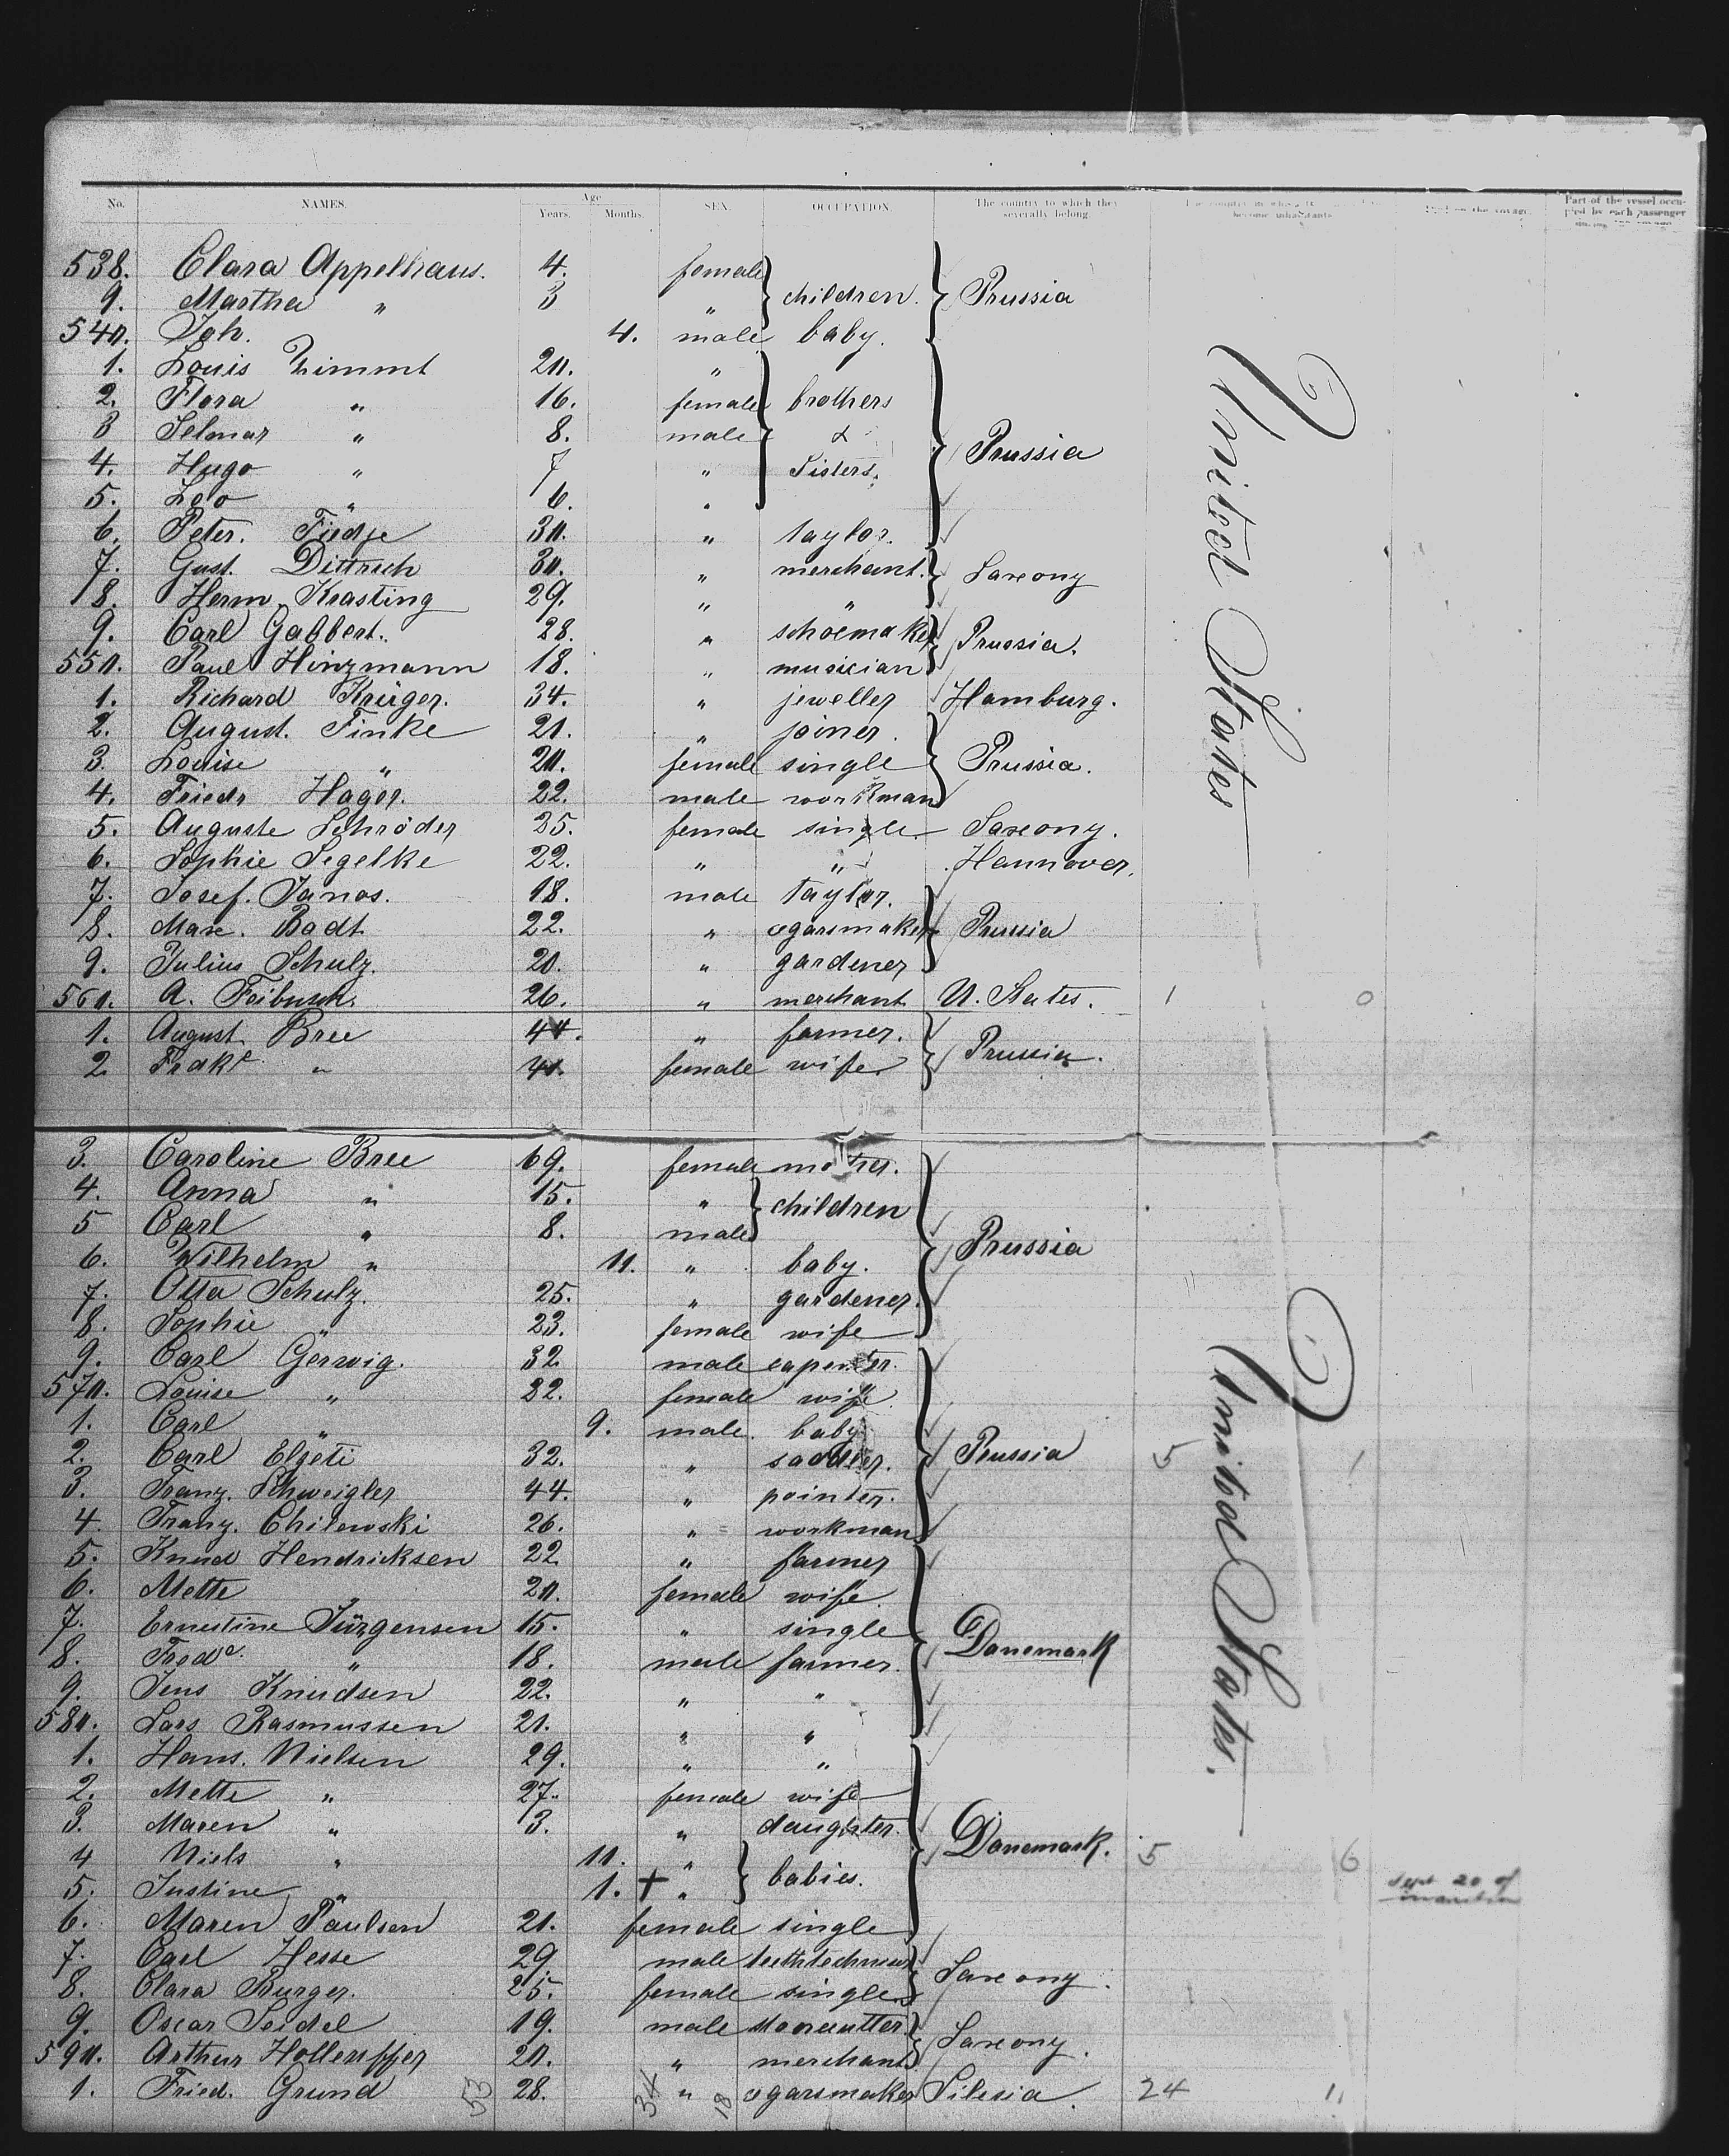 No. NAMES. Age Years. Months. SEX. OCCUPATION. The country to which they severally belong. The country in which they become inhabitants Died on the voyage. Part of the vessel occupied by each passenger
538. Clara Appelhaus. 4. female
9. Martha " 3 " children. Prussia
540. Joh. 4. male baby.
1. Louis Zimmt 20. "
2. Flora " 16. female brothers
3 Selmar " 8. male &
4. Hugo " 7 " Sisters. Prussia
5. Leo " 6. "
6. Peter. Fiedje 30. " taylor.
7. Gust. Dittrich 30. " merchant. Saxony
8. Herm. Krasting 29. " "
9. Carl Gabbert. 28. " schoemaker Prussia.
550. Paul Hinzmann 18. " musician
1. Richard Krüger. 34. " jeweller Hamburg.
2. August. Finke 21. " joiner.
3. Louise " 20. female single Prussia.
4. Friedr Hager. 22. male workman
United States
5. Auguste Schröder 25. female single Saxony.
6. Sophie Segelke 22. " " Hannover.
7. Josef. Janos. 18. male taylor.
8. Max. Badt 22. " cegarsmaker Prussia
9. Julius Schulz. 20. " gardener
560. A. Feibusch. 26. " merchant U. States. 1 0
1. August Bree 44. " farmer. Prussia.
2 Fredke " 40. female wife
3. Caroline Bree 69. female mother.
4. Anna " 15. " children
5 Carl " 8. male Prussia
6. Wilhelm " 11. " baby.
7. Otto Schulz. 25. " gardener.
8. Sophie " 23. female wife
9. Carl Gerwig. 32 male capenter.
570. Louise " 32. female wife.
1. Carl " 9. male. baby
2. Carl Elzeti 32. " saddler. Prussia 5 1
3. Franz. Schweigler 44. " pointer.
4. Franz. Chilewski 26. " workman
5. Knud Hendricksen 22 " farmer
6. Mette " 20. female wife.
7. Ernestine Jürgensen 15. " single
8. Fredr. " 18. male farmer. Danemark
9. Jens Knudsen 22. " "
580. Lars Rasmussen 21. " "
1. Hans. Nielsen 29. " "
United States.
2. Mette " 27. female wife
3. Maren " 3. " daughter.
4 Niels " 11. " babies. Danemark. 5 6
5. Justine " 1. + " Sept 20 of
6. Maren Paulsen 21. female single
7. Carl Hesse 29. male Saxony.
8. Clara Burger. 25. female single
9. Oscar Seidel 19. male stonecutter Saxony.
590. Arthur Hollenffer 20. " merchant
1. Fried. Grund 28. " cegarsmaker Silesia. 24 11
53 34 18